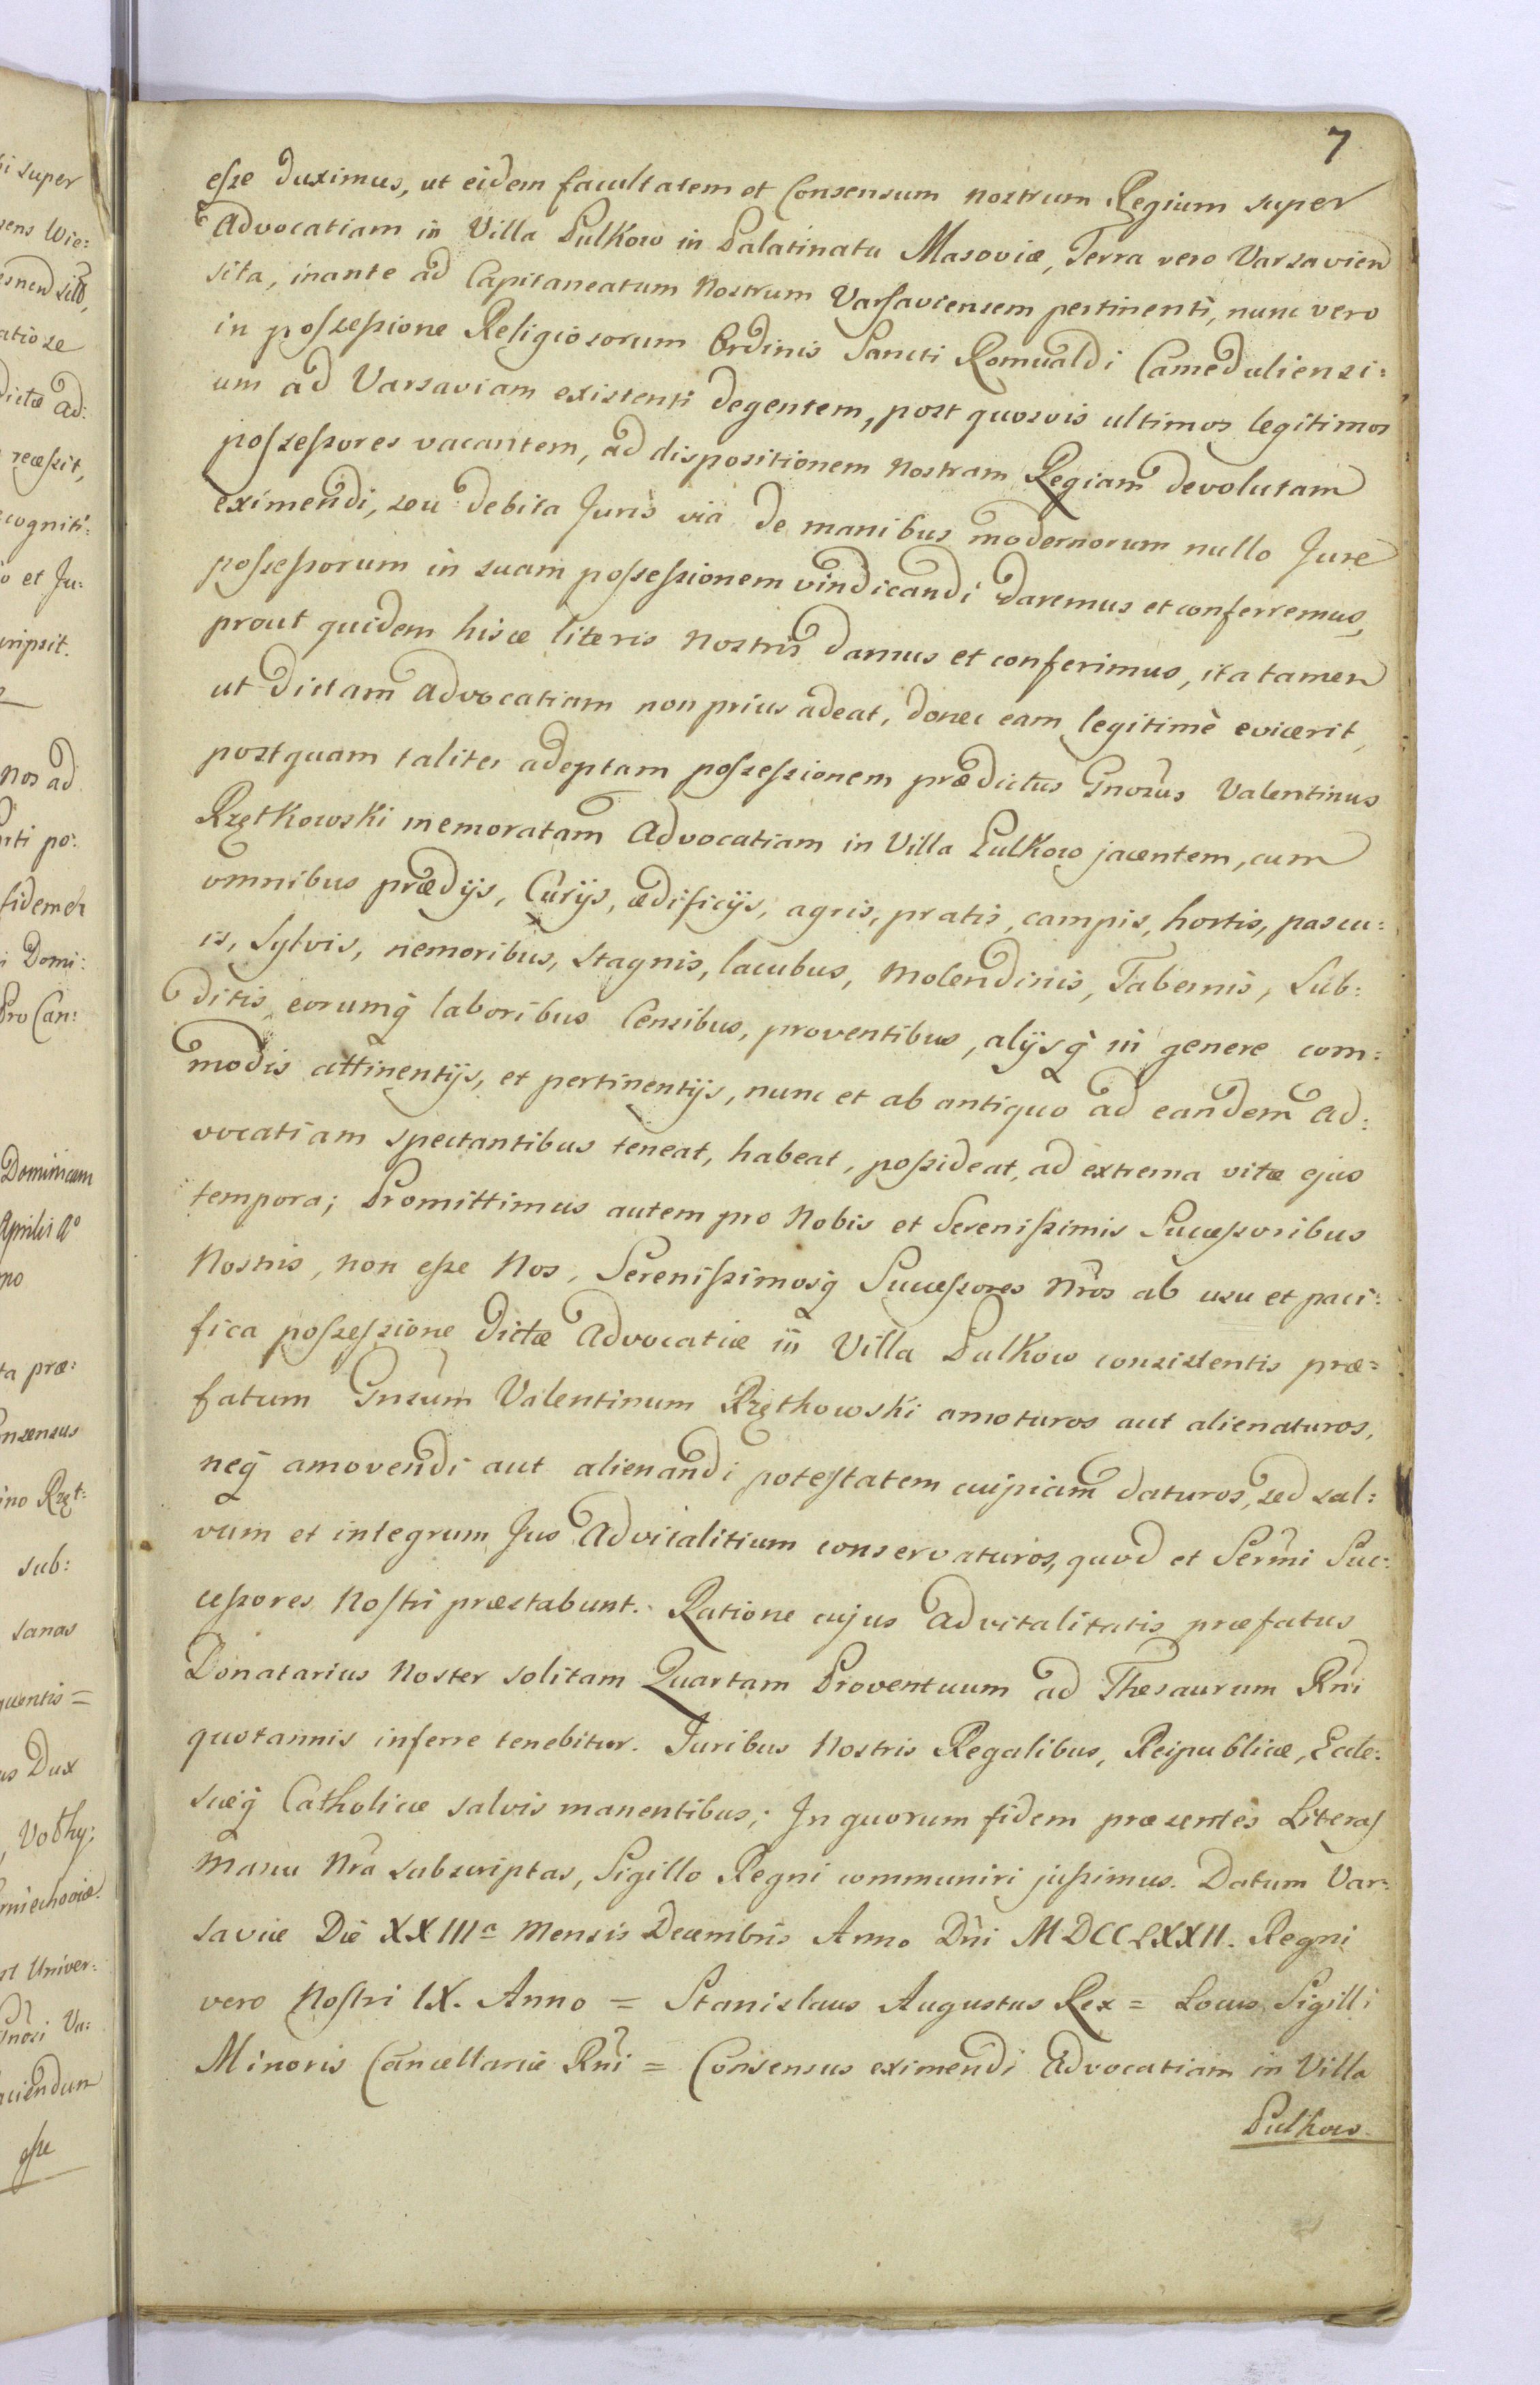 7
eſse duximus, ut eidem facultatem et Consensum nostrum Regium super
Advocatiam in Villa Pulkow in Palatinatu Masoviæ, Terra vero Varsavien
sita, inante ad Capitaneatum Nostrum Varsaviensem pertinenti, nunc vero
in poſseſsione Religiosorum Ordinis Sancti Romualdi Cameduliensi:
um ad Varsaviam existenti degentem, post quosvis ultimos legitimos
poſseſsores vacantem, ad dispositionem Nostram Regiam devolutam
eximendi, seu debita Juris via de manibus modernorum nullo Jure
poſseſsorum in suam poſseſsionem vindicandi daremus et conferremus,
prout quidem hisce literis Nostris damus et conferimus, ita tamen
ut dictam Advocatiam non prius adeat, donec eam legitimè evicerit,
postquam taliter adeptam poſseſsionem prædictus Gnosus Valentinus
Rzętkowski memoratam Advocatiam in Villa Pulkow jacentem, cum
omnibus prædijs, Curijs, ædificijs, agris, pratis, campis, hortis, pascu:
is, Sylvis, nemoribus, Stagnis, lacubus, Molendinis, Tabernis, Sub:
ditis, eorumq́ laboribus Censibus, proventibus, alijsq́ in genere com:
modis attinentijs, et pertinentijs, nunc et ab antiquo ad eandem Ad:
vocatiam spectantibus teneat, habeat, poſsideat, ad extrema vitæ ejus
tempora; Promittimus autem pro Nobis et Sereniſsimis Succeſsoribus
Nostris, non eſse Nos, Sereniſsimosq́ Succeſsores Nr̃os ab usu et paci:
fica poſseſsione dictæ Advocatiæ in Villa Pulkow consistentis præ=
fatum Gnsum Valentinum Rzętkowski amoturos aut alienaturos,
neq́ amovendi aut alienandi poteſtatem cuipiam daturos, sed sal:
vum et integrum Jus Advitalitium conservaturos, quod et Serm̃i Suc:
ceſsores Noſtri præstabunt. Ratione cujus Advitalitatis præfatus
Donatarius Noster solitam Quartam Proventuum ad Thesaurum Rñi
quotannis inferre tenebitur. Juribus Nostris Regalibus, Reipublicæ, Eccle:
siæq́ Catholicæ salvis manentibus; In quorum fidem præsentes Literas
Manu Nr̃a subscriptas, Sigillo Regni communiri juſsimus. Datum Var:
saviæ Die XXIIIa Mensis Decembris Anno Dñi MDCCLXXII. Regni
vero Noſtri IX. Anno = Stanislaus Augustus Rex = Locus Sigilli
Minoris Cancellariæ Rñi = Consensus eximendi Advocatiam in Villa
Pulkow.